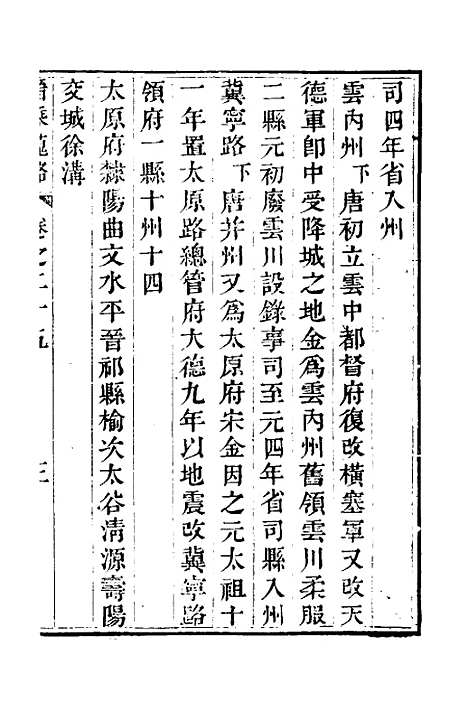 司四年省入州
雲內州下唐初立雲中都督府復改橫塞軍又改天
德軍卽中受降城之地金爲雲內州舊領雲川柔服
二縣元初廢雲川設錄事司至元四年省司縣入州
冀寧路下唐并州又爲太原府宋金因之元太祖十
一年置太原路總管府大德九年以地震改冀寧路
領府一縣十州十四
太原府隸陽曲文水平晉祁縣榆次太谷淸源壽陽
交城徐溝
卷之三十五 三